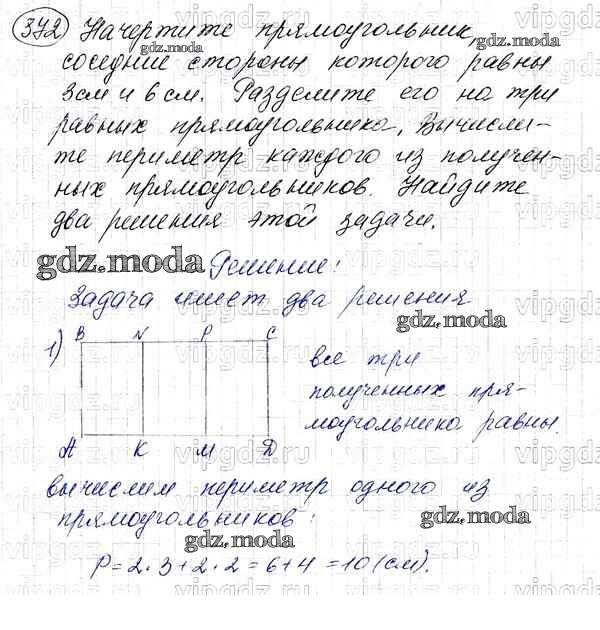 372 Начертите прямоугольник,
соседние стороны которого равны
3 см и 6 см. Разделите его на три
равных прямоугольника, Вычисли-
те периметр каждого из получен-
ных прямоугольников. Найдите
два решения этой задачи.
Решение:
Задача имеет два решения
1)
B N P C
A K M D
все три
полученных пря-
моугольника равны.
вычислим периметр одного из
прямоугольников:
P = 2·3+2·2 = 6+4 = 10 (см).
gdz.moda
gdz.moda
gdz.moda
gdz.moda
gdz.moda
gdz.moda
gdz.moda
gdz.moda
vipgdz.ru